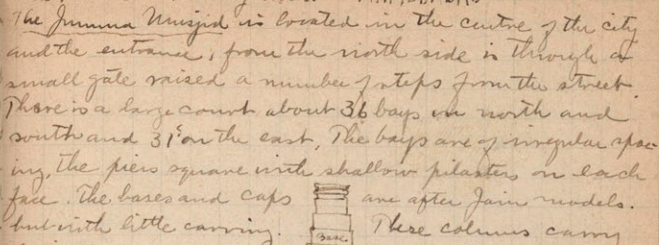 The Jumma Musjid is located in the centre of the city
and the entrance, from the north side is through a
small gate raised a number of steps from the street.
There is a large court about 36 bays on north and
south and 31 on the east. The bays are of irregular spac-
ing, the piers square with shallow pilasters on each
face. The bases and caps are after Jain models.
but with little carving. Base These columns carry